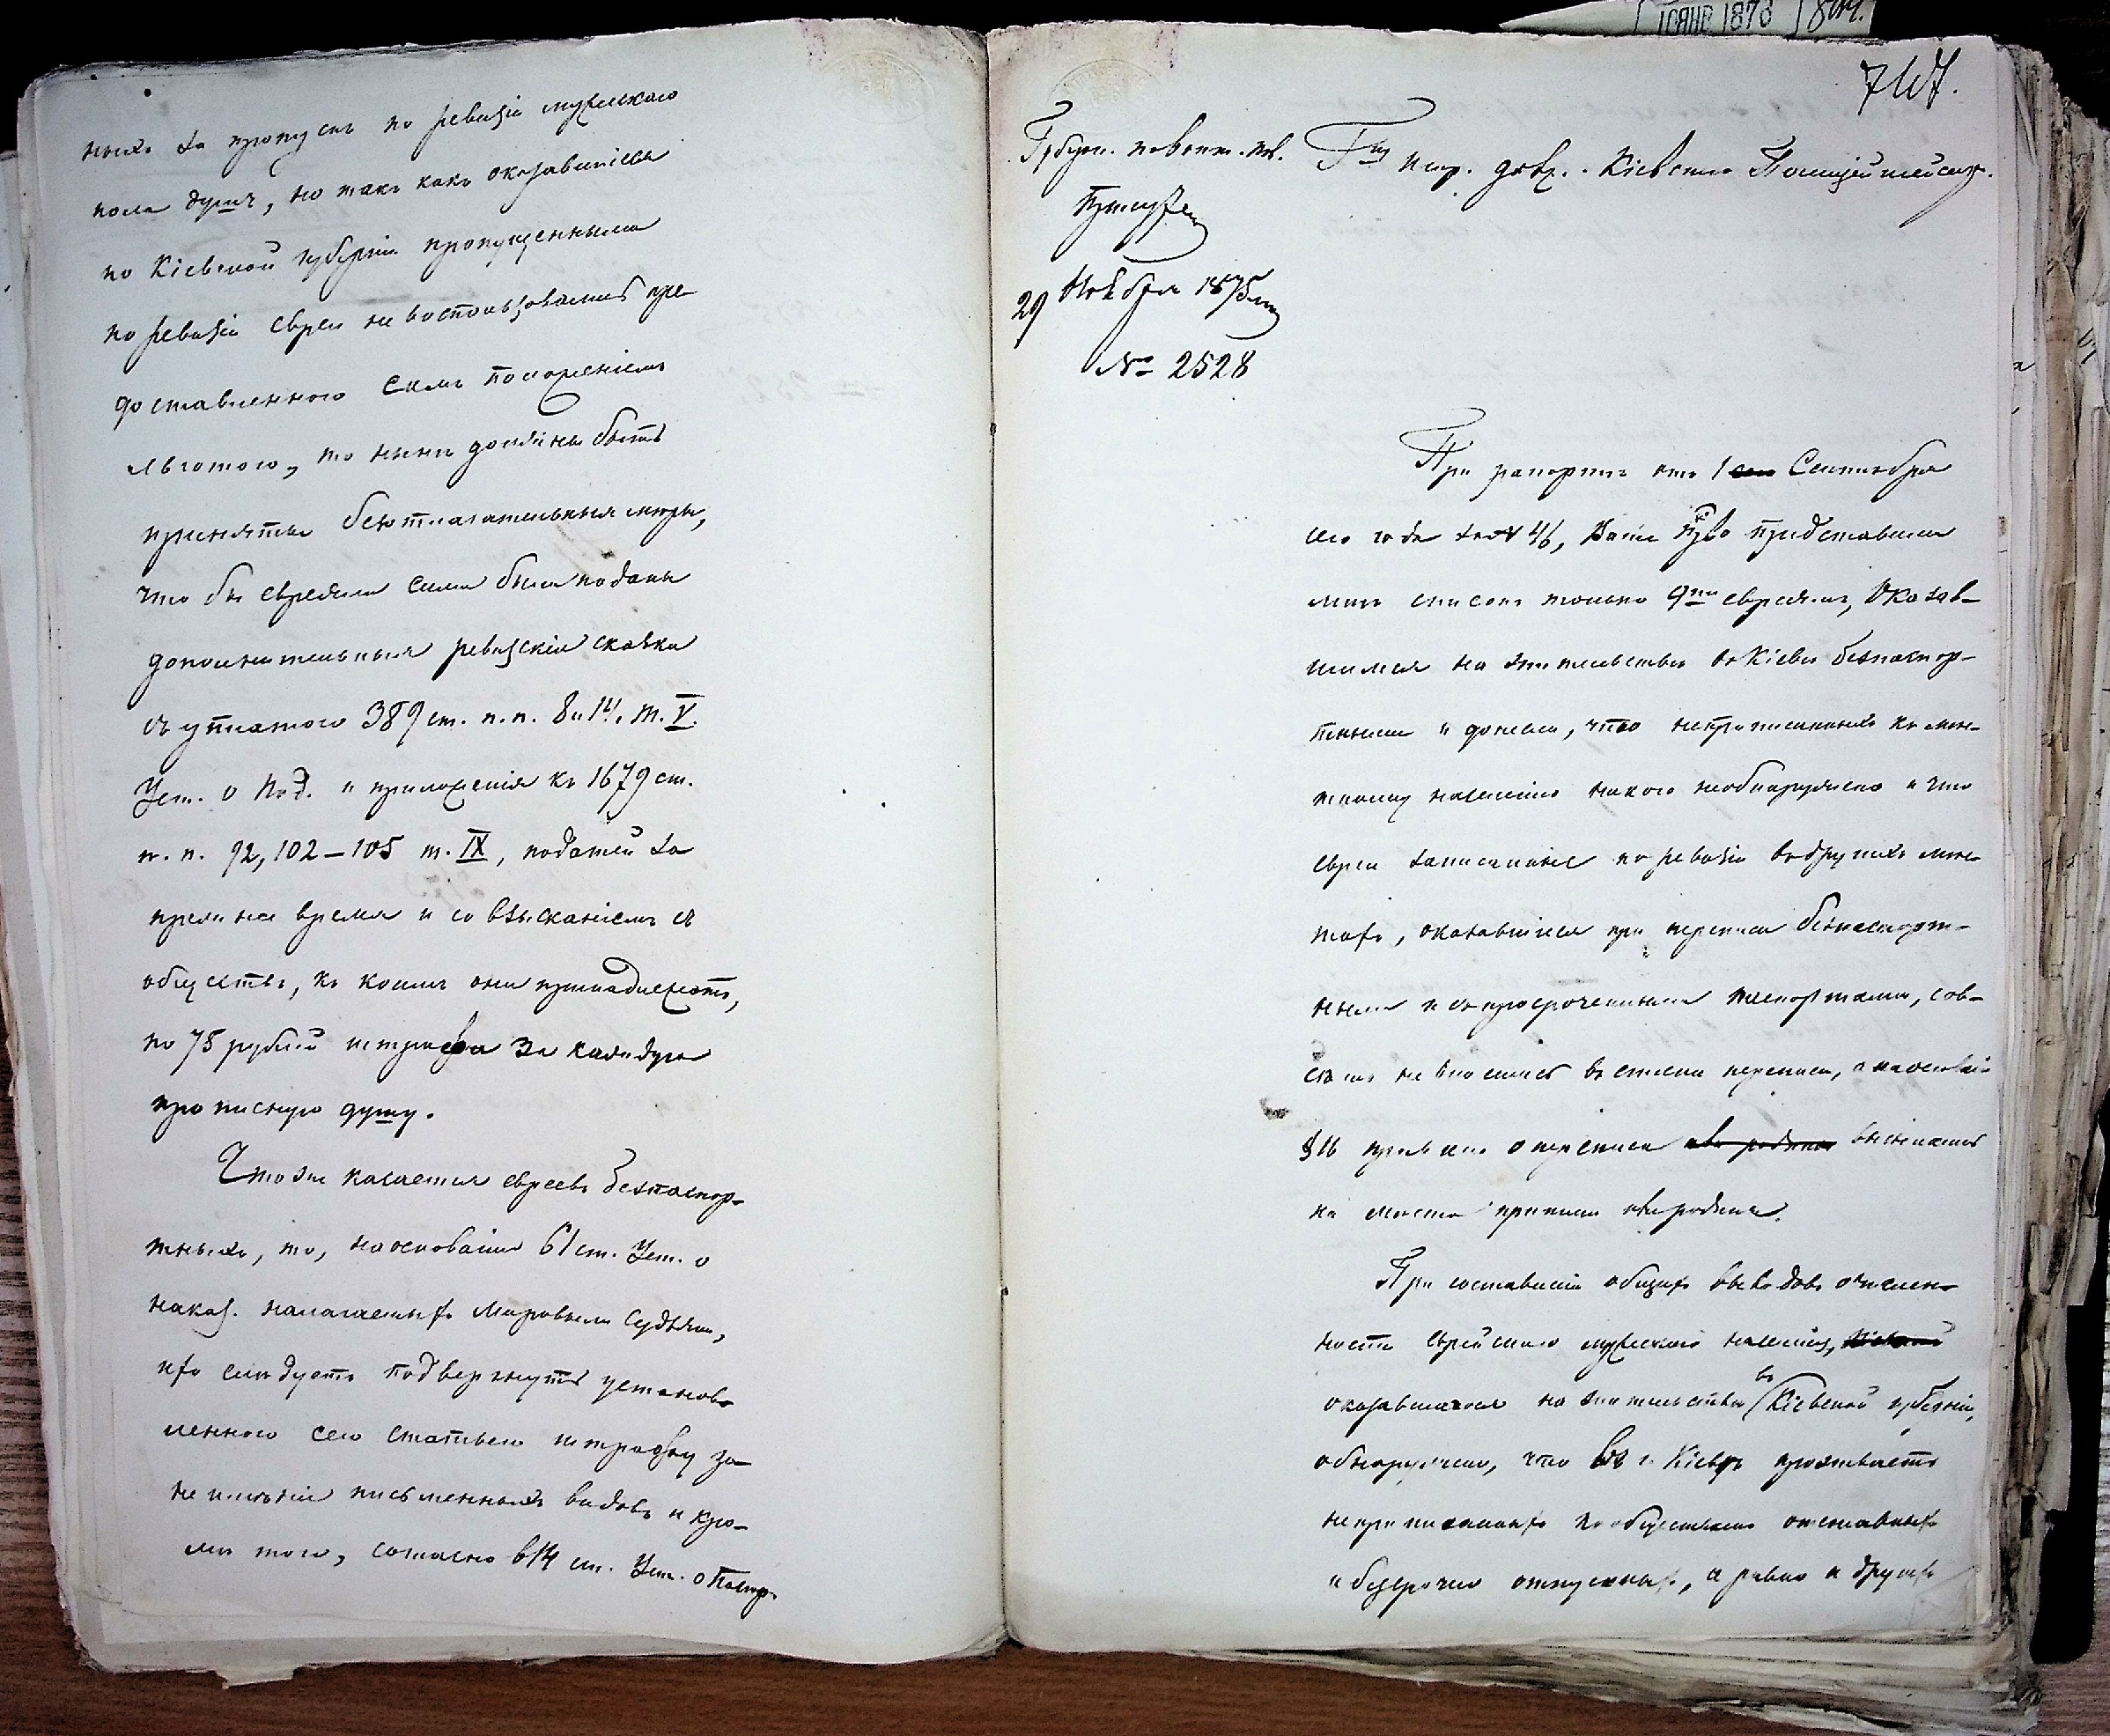 ныхъ за пропускъ по ревизіи мужескаго
пола душъ, но такъ какъ оказавшіеся
по Кіевской губерніи пропущенными
по ревизіи евреи не воспользовались пре-
доставленною симъ положеніемъ
льготою, то нынѣ должны быть
приняты безотлагательныя мѣры,
что бы евреями сими были поданы
дополнительныя ревизскія сказки
съ уплатою 389 ст. п.п. 8 и 14. т. V.
Уст. о Под. и приложенія къ 1679 ст.
п. п. 92, 102–105 т. IX, податей за
прежнее время и со взысканіемъ съ
обществъ, къ коимъ они принадлежатъ,
по 75 рублей штрафа за каждую
прописную душу.
Что же касается евреевъ безпаспор-
тныхъ, то, на основаніи 61 ст. Уст. о
наказ. налагаемыхъ Мировыми Судьями,
ихъ слѣдуетъ подвергнуть установ-
ленному сею статьею штрафу за
не имѣніе письменныхъ видовъ и кро-
мѣ того, согласно 614 ст. Уст. о Паспор.
10 ЯНВ 1876
Губерн. по воин. пов.
29 Ноября 1875
№ 2528
Гну исп. долж. Кіевскаго Полиціймейстера.
При рапортѣ отъ 1 Сентября
сего года за № 46, Ваше представили
мнѣ списокъ только 9ти евреямъ, оказав-
шимся на жительствѣ въ Кіевѣ безпаспор-
тными и донесли, что неприписанныхъ къ мѣс-
тному населенію никого необнаружено и что
евреи записанные по ревизіи въ другихъ мѣс-
тахъ, оказавшіеся при переписи безпаспорт-
ными и съ просроченными паспортами, сов-
сѣмъ не вносились въ списки переписи, а на основаніи
§ 16 правилъ о переписи высылались
на мѣста приписки
При составленіи общихъ выводовъ о числен-
ности еврейскаго мужескаго населенія,
оказавшагося на жительствѣ въ Кіевской губерніи,
обнаружено, что въ г. Кіевѣ проживаетъ
неприписанныхъ къ обществамъ отставныхъ
и безсрочно отпускныхъ, а равно и другихъ